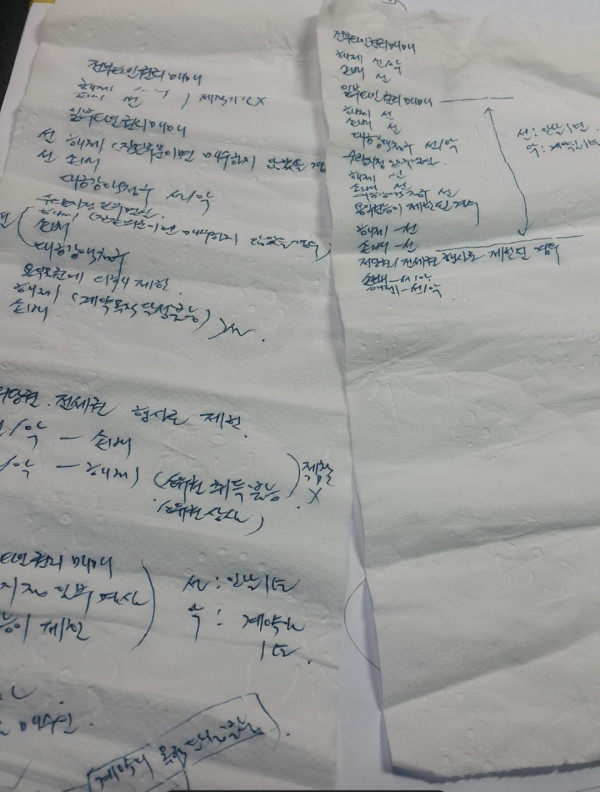 전부타인권리매매
해제 선/악
손배 선 ) 제척기간X
일부타인권리매매
선 해제 (잔존부분이면 매수하지 않았을 경우
선 손배
대금감액청구 선/악
수량지정 일부멸실
해제 (잔존부분이면 매수하지 않았을 경우)
손배
대금감액청구
용익권에 의해 제한
해제 (계약목적달성불능)
손배
저당권. 전세권 행사로 제한
선/악 - 손배
선/악 - 해제 (소유권 취득불능
소유권 상실)
제척 X
타인권리매매
지정 일부멸실
제한
선 : 안날 1년
악 : 계약한
1년
매수인.
계약의 목적
전부타인권리매매
해제 선/악
손배 선
일부타인권리매매
해제 선
손배 선
대금감액청구 선/악
수량지정 일부멸실
해제 선
손배 선
대금감액청구 선
용익권등이 제한된 경우
해제 - 선
손배 - 선
저당권 전세권 행사로 제한된 경우
손배 - 선/악
해제 - 선/악
선 : 안날 1년
악 : 계약 1년